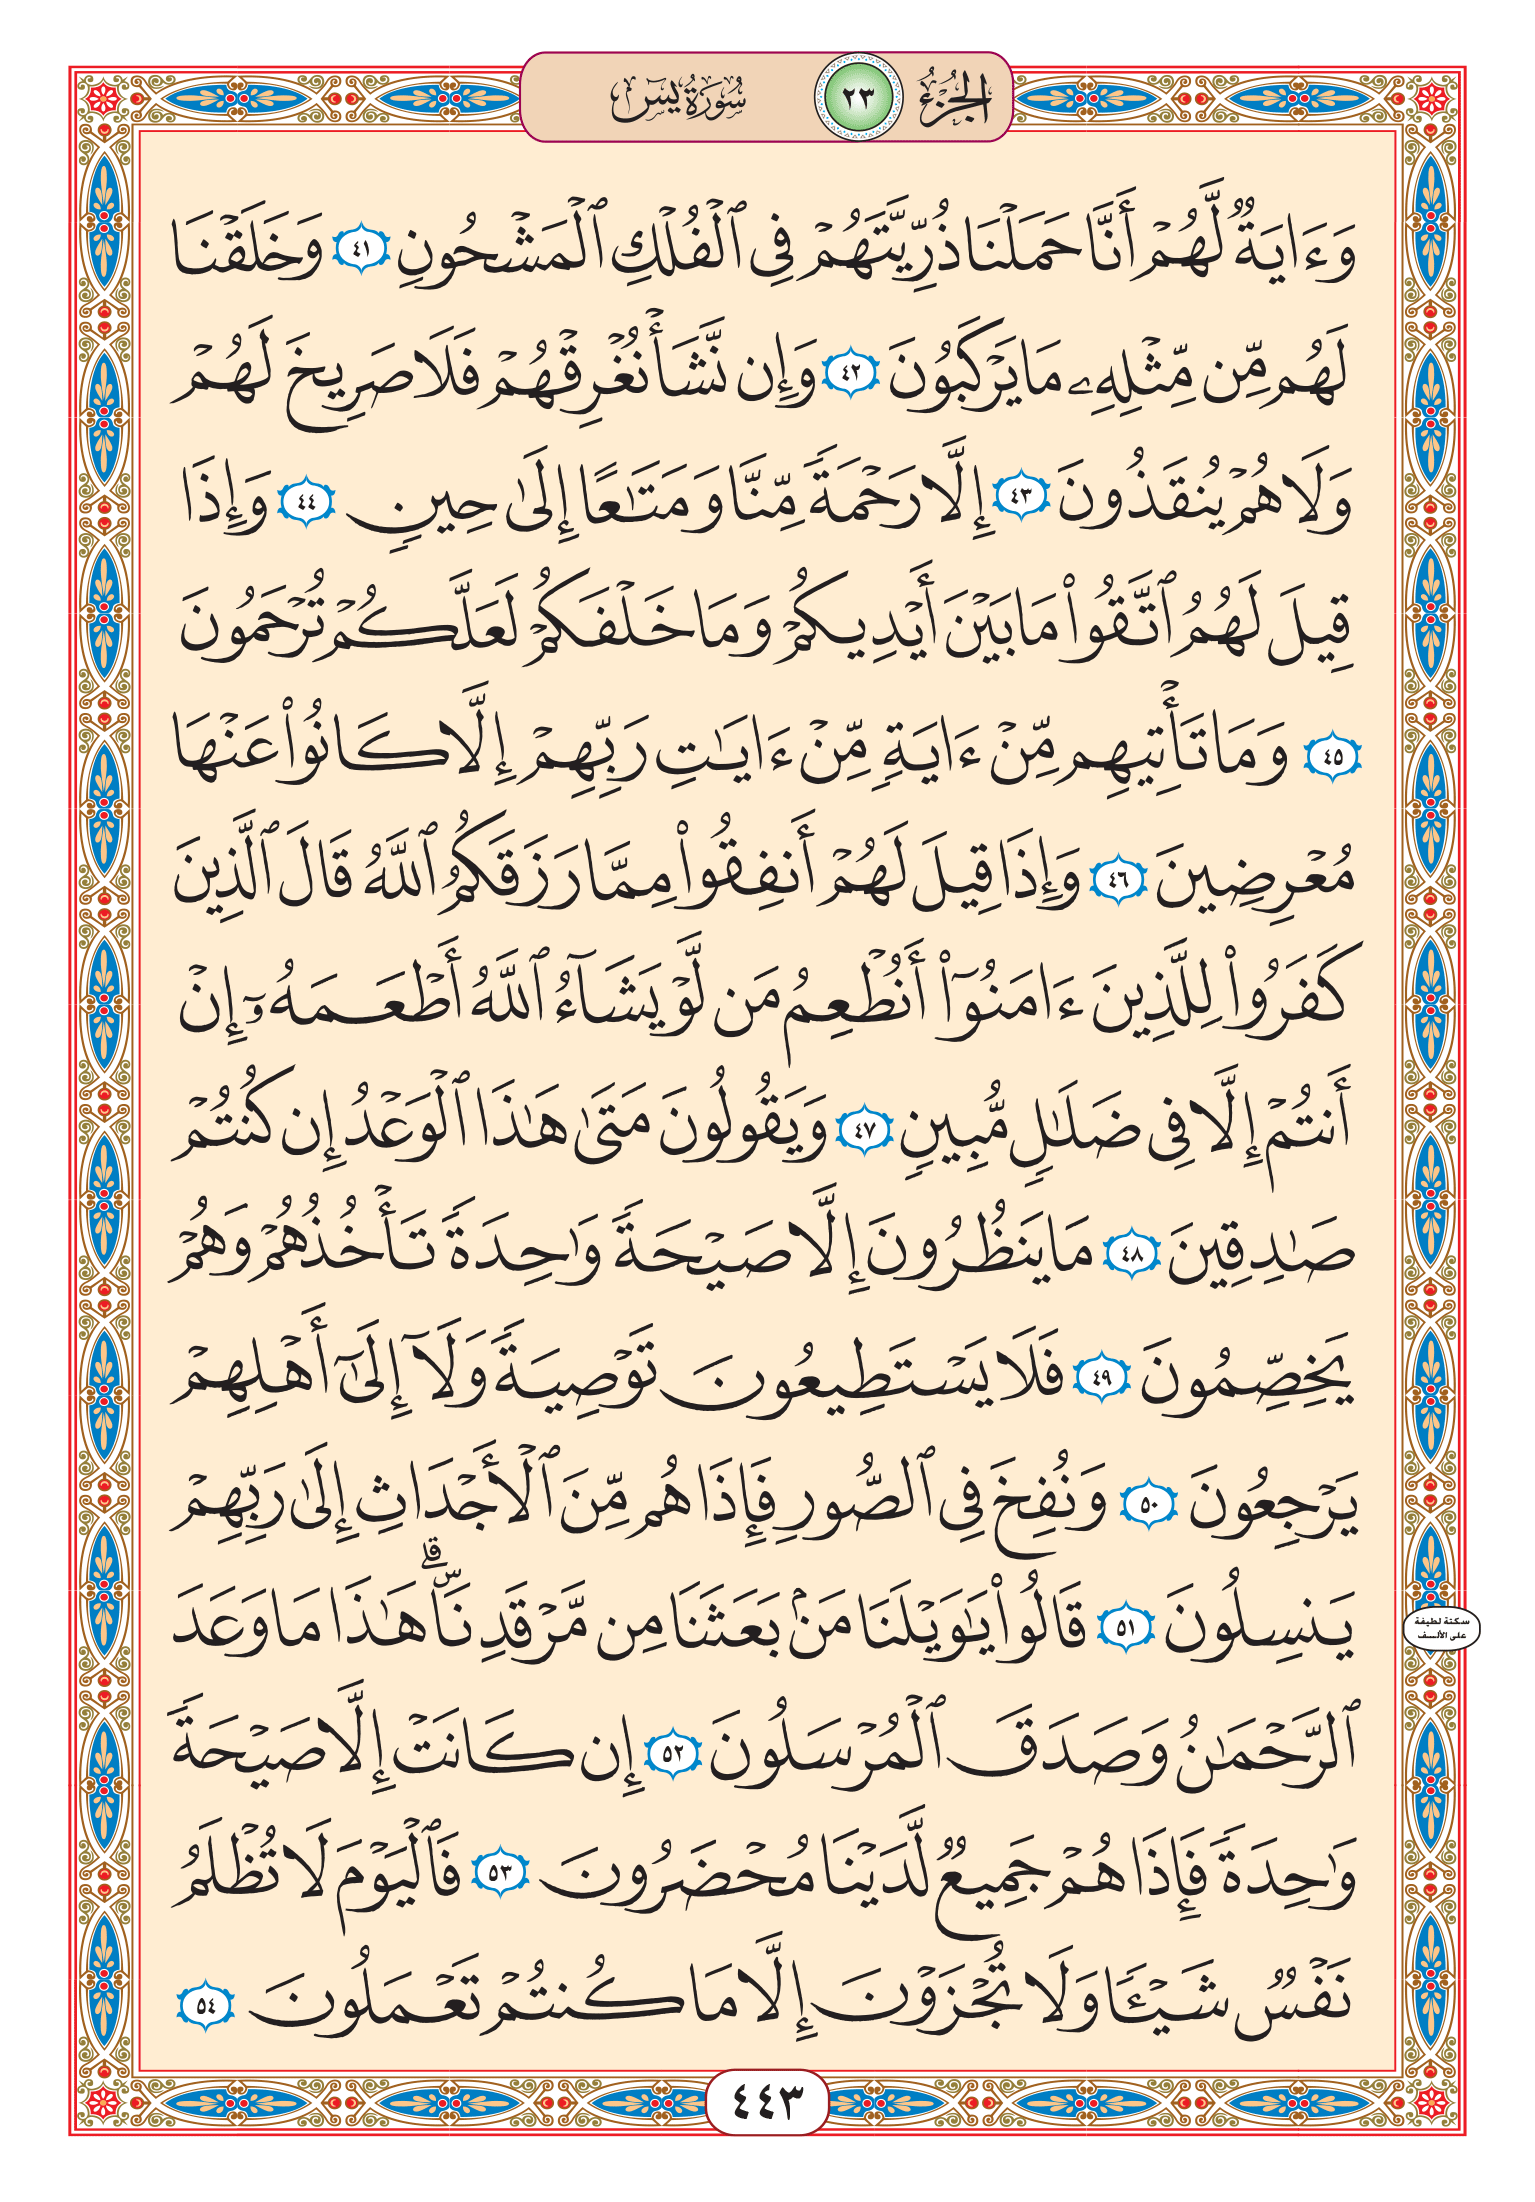 الجزء ٢٣ سورة يس
وَءَايَةٌ لَّهُمْ أَنَّا حَمَلْنَا ذُرِّيَّتَهُمْ فِى ٱلْفُلْكِ ٱلْمَشْحُونِ ٤١ وَخَلَقْنَا
لَهُم مِّن مِّثْلِهِۦ مَا يَرْكَبُونَ ٤٢ وَإِن نَّشَأْ نُغْرِقْهُمْ فَلَا صَرِيخَ لَهُمْ
وَلَا هُمْ يُنقَذُونَ ٤٣ إِلَّا رَحْمَةً مِّنَّا وَمَتَٰعًا إِلَىٰ حِينٍ ٤٤ وَإِذَا
قِيلَ لَهُمُ ٱتَّقُوا۟ مَا بَيْنَ أَيْدِيكُمْ وَمَا خَلْفَكُمْ لَعَلَّكُمْ تُرْحَمُونَ
٤٥ وَمَا تَأْتِيهِم مِّنْ ءَايَةٍ مِّنْ ءَايَٰتِ رَبِّهِمْ إِلَّا كَانُوا۟ عَنْهَا
مُعْرِضِينَ ٤٦ وَإِذَا قِيلَ لَهُمْ أَنفِقُوا۟ مِمَّا رَزَقَكُمُ ٱللَّهُ قَالَ ٱلَّذِينَ
كَفَرُوا۟ لِلَّذِينَ ءَامَنُوٓا۟ أَنُطْعِمُ مَن لَّوْ يَشَآءُ ٱللَّهُ أَطْعَمَهُۥٓ إِنْ
أَنتُمْ إِلَّا فِى ضَلَٰلٍ مُّبِينٍ ٤٧ وَيَقُولُونَ مَتَىٰ هَٰذَا ٱلْوَعْدُ إِن كُنتُمْ
صَٰدِقِينَ ٤٨ مَا يَنظُرُونَ إِلَّا صَيْحَةً وَٰحِدَةً تَأْخُذُهُمْ وَهُمْ
يَخِصِّمُونَ ٤٩ فَلَا يَسْتَطِيعُونَ تَوْصِيَةً وَلَآ إِلَىٰٓ أَهْلِهِمْ
يَرْجِعُونَ ٥٠ وَنُفِخَ فِى ٱلصُّورِ فَإِذَا هُم مِّنَ ٱلْأَجْدَاثِ إِلَىٰ رَبِّهِمْ
يَنسِلُونَ ٥١ قَالُوا۟ يَٰوَيْلَنَا مَنۢ بَعَثَنَا مِن مَّرْقَدِنَاۜۗ هَٰذَا مَا وَعَدَ
سكتة لطيفة
على الألف
ٱلرَّحْمَٰنُ وَصَدَقَ ٱلْمُرْسَلُونَ ٥٢ إِن كَانَتْ إِلَّا صَيْحَةً
وَٰحِدَةً فَإِذَا هُمْ جَمِيعٌ لَّدَيْنَا مُحْضَرُونَ ٥٣ فَٱلْيَوْمَ لَا تُظْلَمُ
نَفْسٌ شَيْـًٔا وَلَا تُجْزَوْنَ إِلَّا مَا كُنتُمْ تَعْمَلُونَ ٥٤
٤٤٣